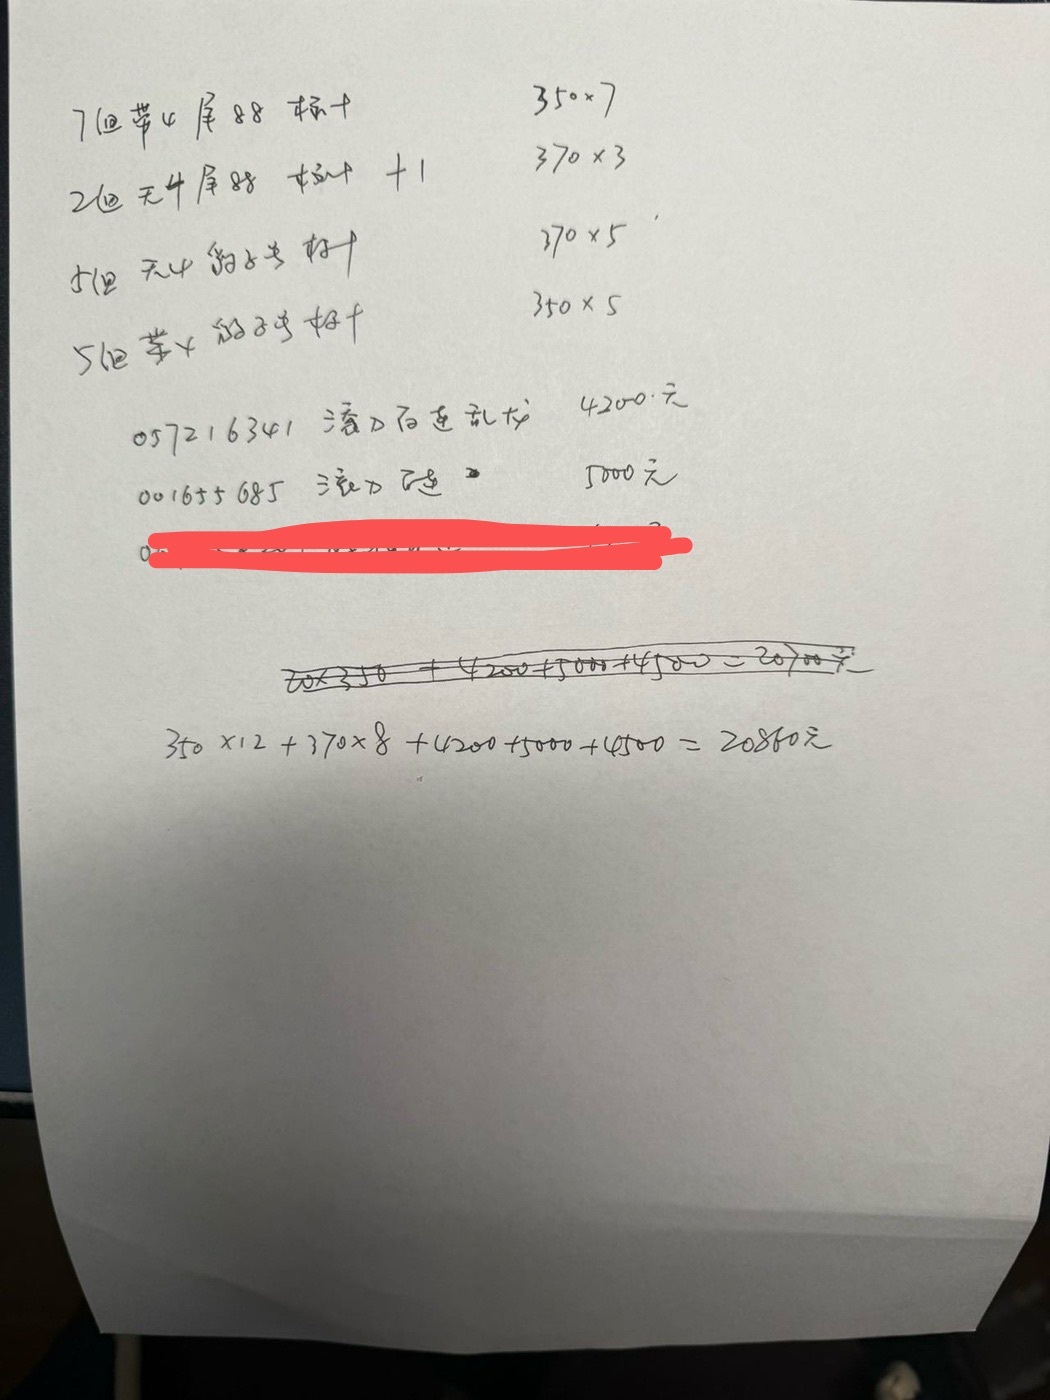 7位带4尾88标十 350×7
2位无4尾88标十 +1 370×3
5位无4豹子号标十 370×5
5位带4豹子号标十 350×5
057216341 滚刀百连乱龙 4200.元
001655685 滚刀百连 5000元
20×350 + 4200+5000+4500=20700元
350×12+370×8+4200+5000+4500=20860元